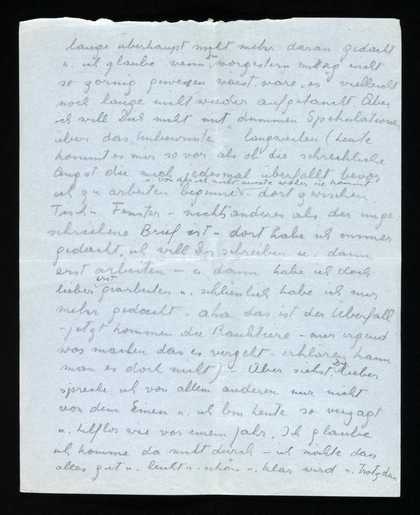 lange überhaupt nicht mehr daran gedacht
u. ich glaube wenn Du vorgestern mittag nicht
so zornig gewesen wärst, wäre es vielleicht
noch lange nicht wieder aufgetaucht Aber
ich will Dich nicht mit dummen Spekulationen
über das Unbewusste langweilen (heute
kommt es mir so vor als ob die schreckliche
Angst die mich jedesmal überfällt bevor
u. von der ich nicht wusste woher sie kommt
ich zu arbeiten beginne - dort zwischen
Tisch - Fenster - nichts anderes als der unge-
schriebene Brief ist - dort habe ich immer
gedacht, ich will Dir schreiben u. dann
erst arbeiten - u. dann habe ich doch
lieber erst gearbeitet u. schliesslich habe ich nur
mehr gedacht - aha das ist der Überfall
- jetzt kommen die Raubtiere - nur irgend
was machen das es vergeht - erklären kann
man es doch nicht) - Aber siehst Du lieber
spreche ich von allem anderen nur nicht
von dem Einen u. ich bin heute so verzagt
u. hilflos wie vor einem Jahr. Ich glaube
ich komme da nicht durch - ich möchte das
alles gut u. leicht u. schön u. klar wird u. trotzdem